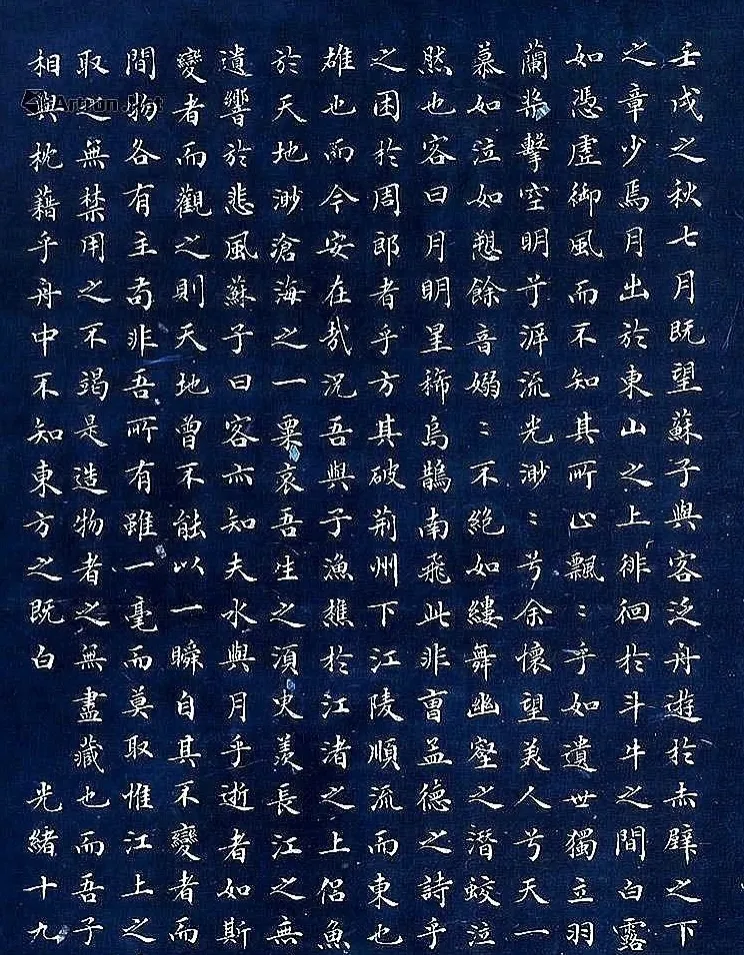 壬戌之秋七月既望蘇子與客泛舟遊於赤壁之下
之章少焉月出於東山之上徘徊於斗牛之間白露
如憑虛御風而不知其所止飄〻乎如遺世獨立羽
蘭槳擊空明兮泝流光渺〻兮余懷望美人兮天一
慕如泣如愬餘音嫋〻不絕如縷舞幽壑之潛蛟泣
然也客曰月明星稀烏鵲南飛此非曹孟德之詩乎
之困於周郎者乎方其破荊州下江陵順流而東也
雄也而今安在哉況吾與子漁樵於江渚之上侶魚
於天地渺滄海之一粟哀吾生之須臾羨長江之無
遺響於悲風蘇子曰客亦知夫水與月乎逝者如斯
變者而觀之則天地曾不能以一瞬自其不變者而
間物各有主苟非吾所有雖一毫而莫取惟江上之
取之無禁用之不竭是造物者之無盡藏也而吾子
相與枕藉乎舟中不知東方之既白 光緒十九
Artron.Net